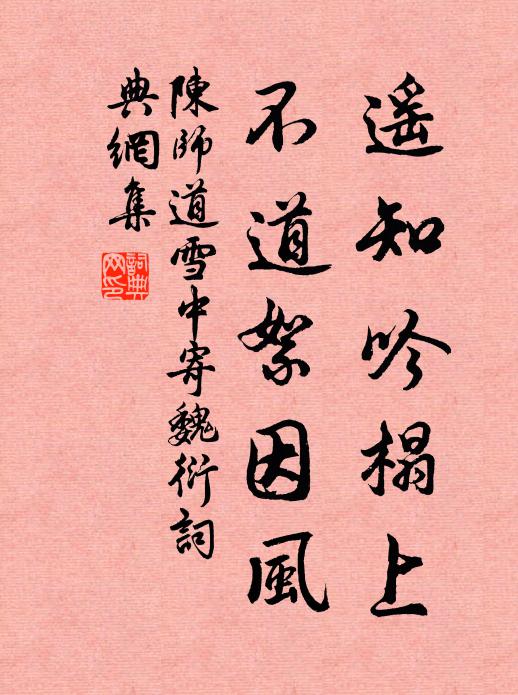 遥知吟榻上
不道絮因風
陳師道雪中寄魏衍詞
典網集
詞典
网印